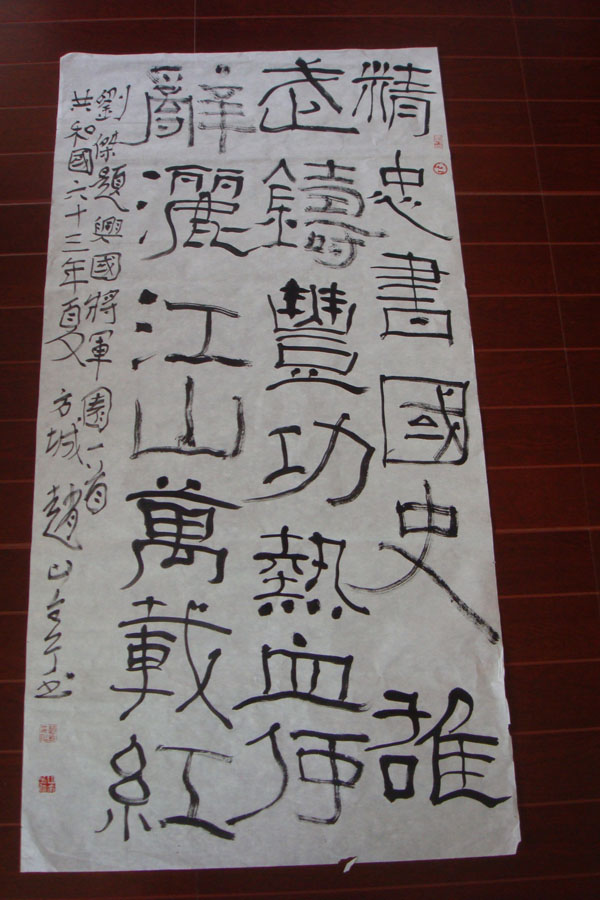 精忠書國史雄
武鑄豐功熱血何
辭灑江山萬載紅
劉傑題興國將軍園一首
共和國六十三年夏又方城趙山